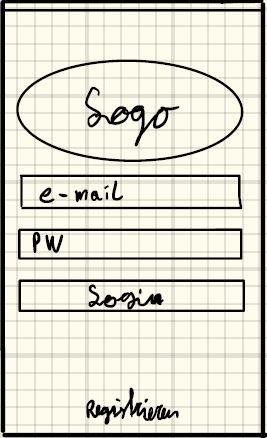 Logo
e-mail
PW
Login
Registrieren